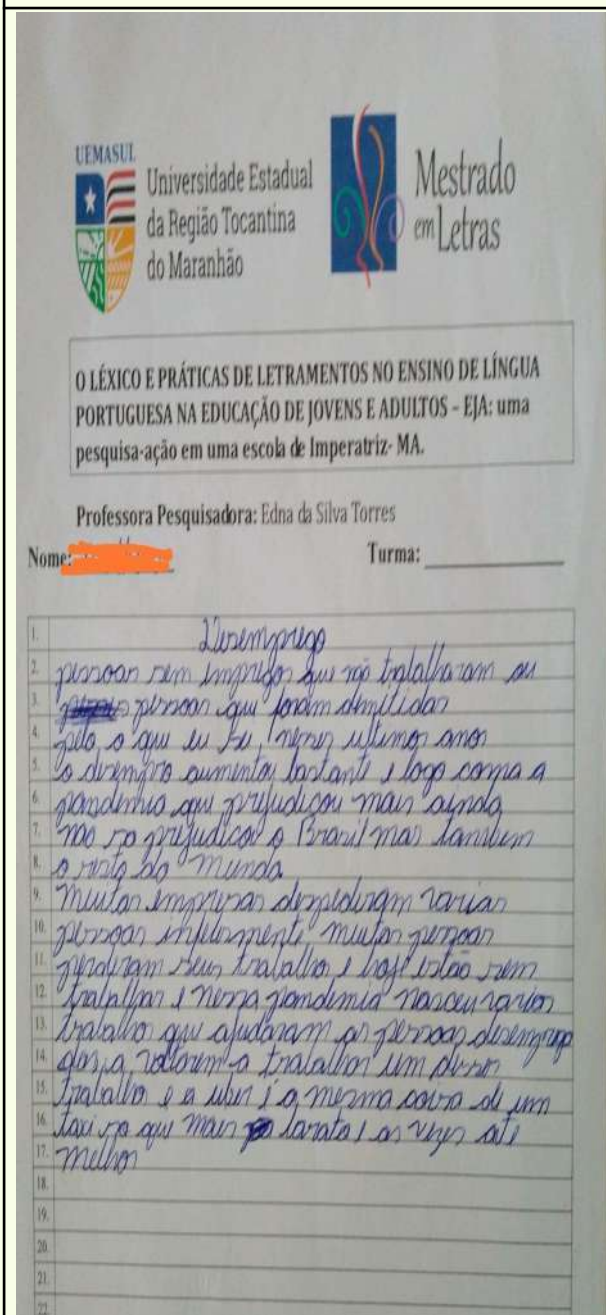 UEMASUL
Universidade Estadual
da Região Tocantina
do Maranhão
Mestrado
em Letras
O LÉXICO E PRÁTICAS DE LETRAMENTOS NO ENSINO DE LÍNGUA
PORTUGUESA NA EDUCAÇÃO DE JOVENS E ADULTOS – EJA: uma
pesquisa-ação em uma escola de Imperatriz- MA.
Professora Pesquisadora: Edna da Silva Torres
Nome: Turma:
1. Desemprego
2. pessoas sem empregos que não trabalharam ou
3. pessoas que foram demitidas
4. pelo o que eu sei, neses ultimos anos
5. o desempro aumentou bastante e logo com a
6. pandemia que prejudicou mais ainda
7. não so prejudicou o Brasil mas tambem
8. o resto do mundo
9. Muitas empresas despediram varias
10. pessoas infelizmente muitas pessoas
11. perderam seus trabalho e hoje estão sem
12. trabalhar e nessa pandemia nasceu varios
13. trabalho que ajudaram as pessoas desemprega
14. das a voltarem a trabalhar um desses
15. trabalho e a uber é a mesma coisa de um
16. taxi so que mais barato e as vezes até
17. melhor
18.
19.
20.
21.
22.